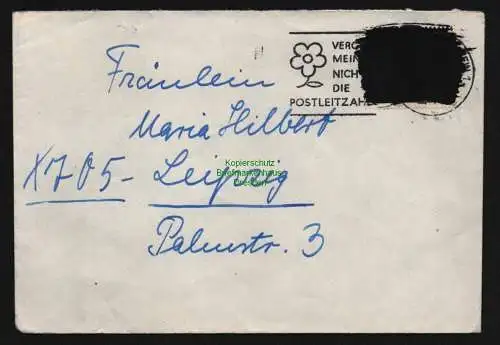 VERG
MEIN
NICH
DIE
POSTLEITZAH
Fräulein
Maria Hilbert
X705- Leipzig
Palmstr. 3
Kopierschutz
Briefmarkenhaus
Dresden